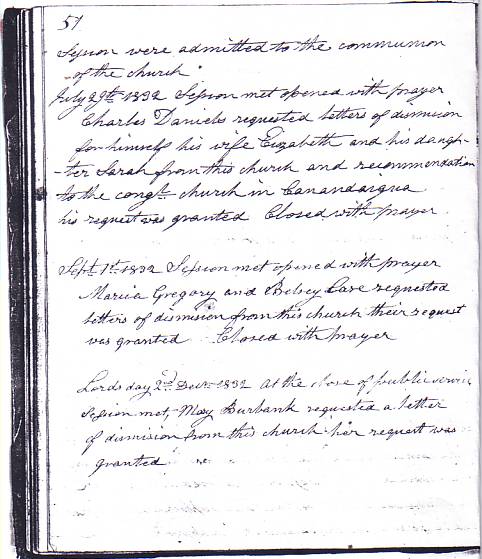 51
Session were admitted to the communion
of the church
July 29th 1832 Session met opened with prayer
Charles Daniels requested letters of dismision
for himself his wife Elizabeth and his daugh-
-ter Sarah from this church and recommendation
to the congl. church in Canandaigua
his request was granted Closed with prayer
Sept 1st 1832 Session met opened with prayer
Maria Gregory and Betsey Case requested
letters of dismision from this church their request
was granted Closed with prayer
Lords day 2nd Decr 1832 At the close of public service
Session met, May Burbank requested a letter
of dismision from this church her request was
granted